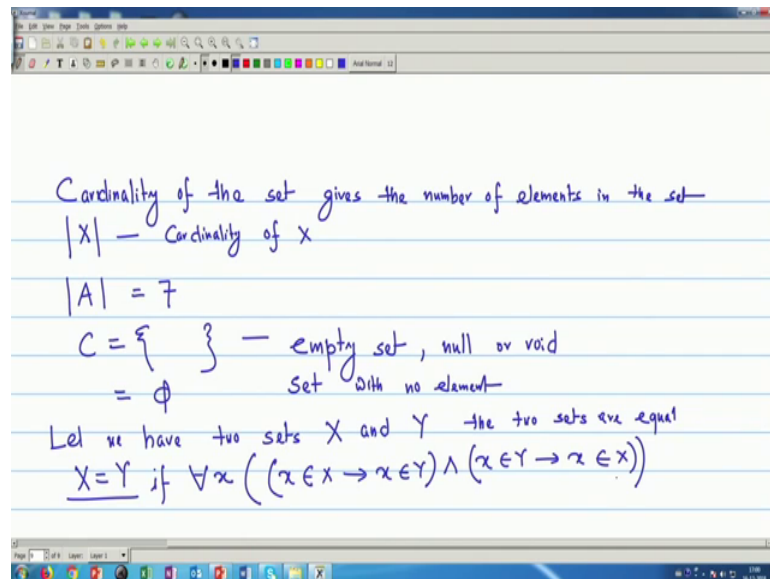 Journal
File Edit View Page Tools Options Help
Arial Normal 12
Cardinality of the set gives the number of elements in the set
|X| — Cardinality of X
|A| = 7
C = { } — empty set, null or void
= ϕ set with no element
Let we have two sets X and Y the two sets are equal
X=Y if ∀x ((x ∈ X → x ∈ Y) ∧ (x ∈ Y → x ∈ X))
Page 9 of 9 Layer: Layer 1